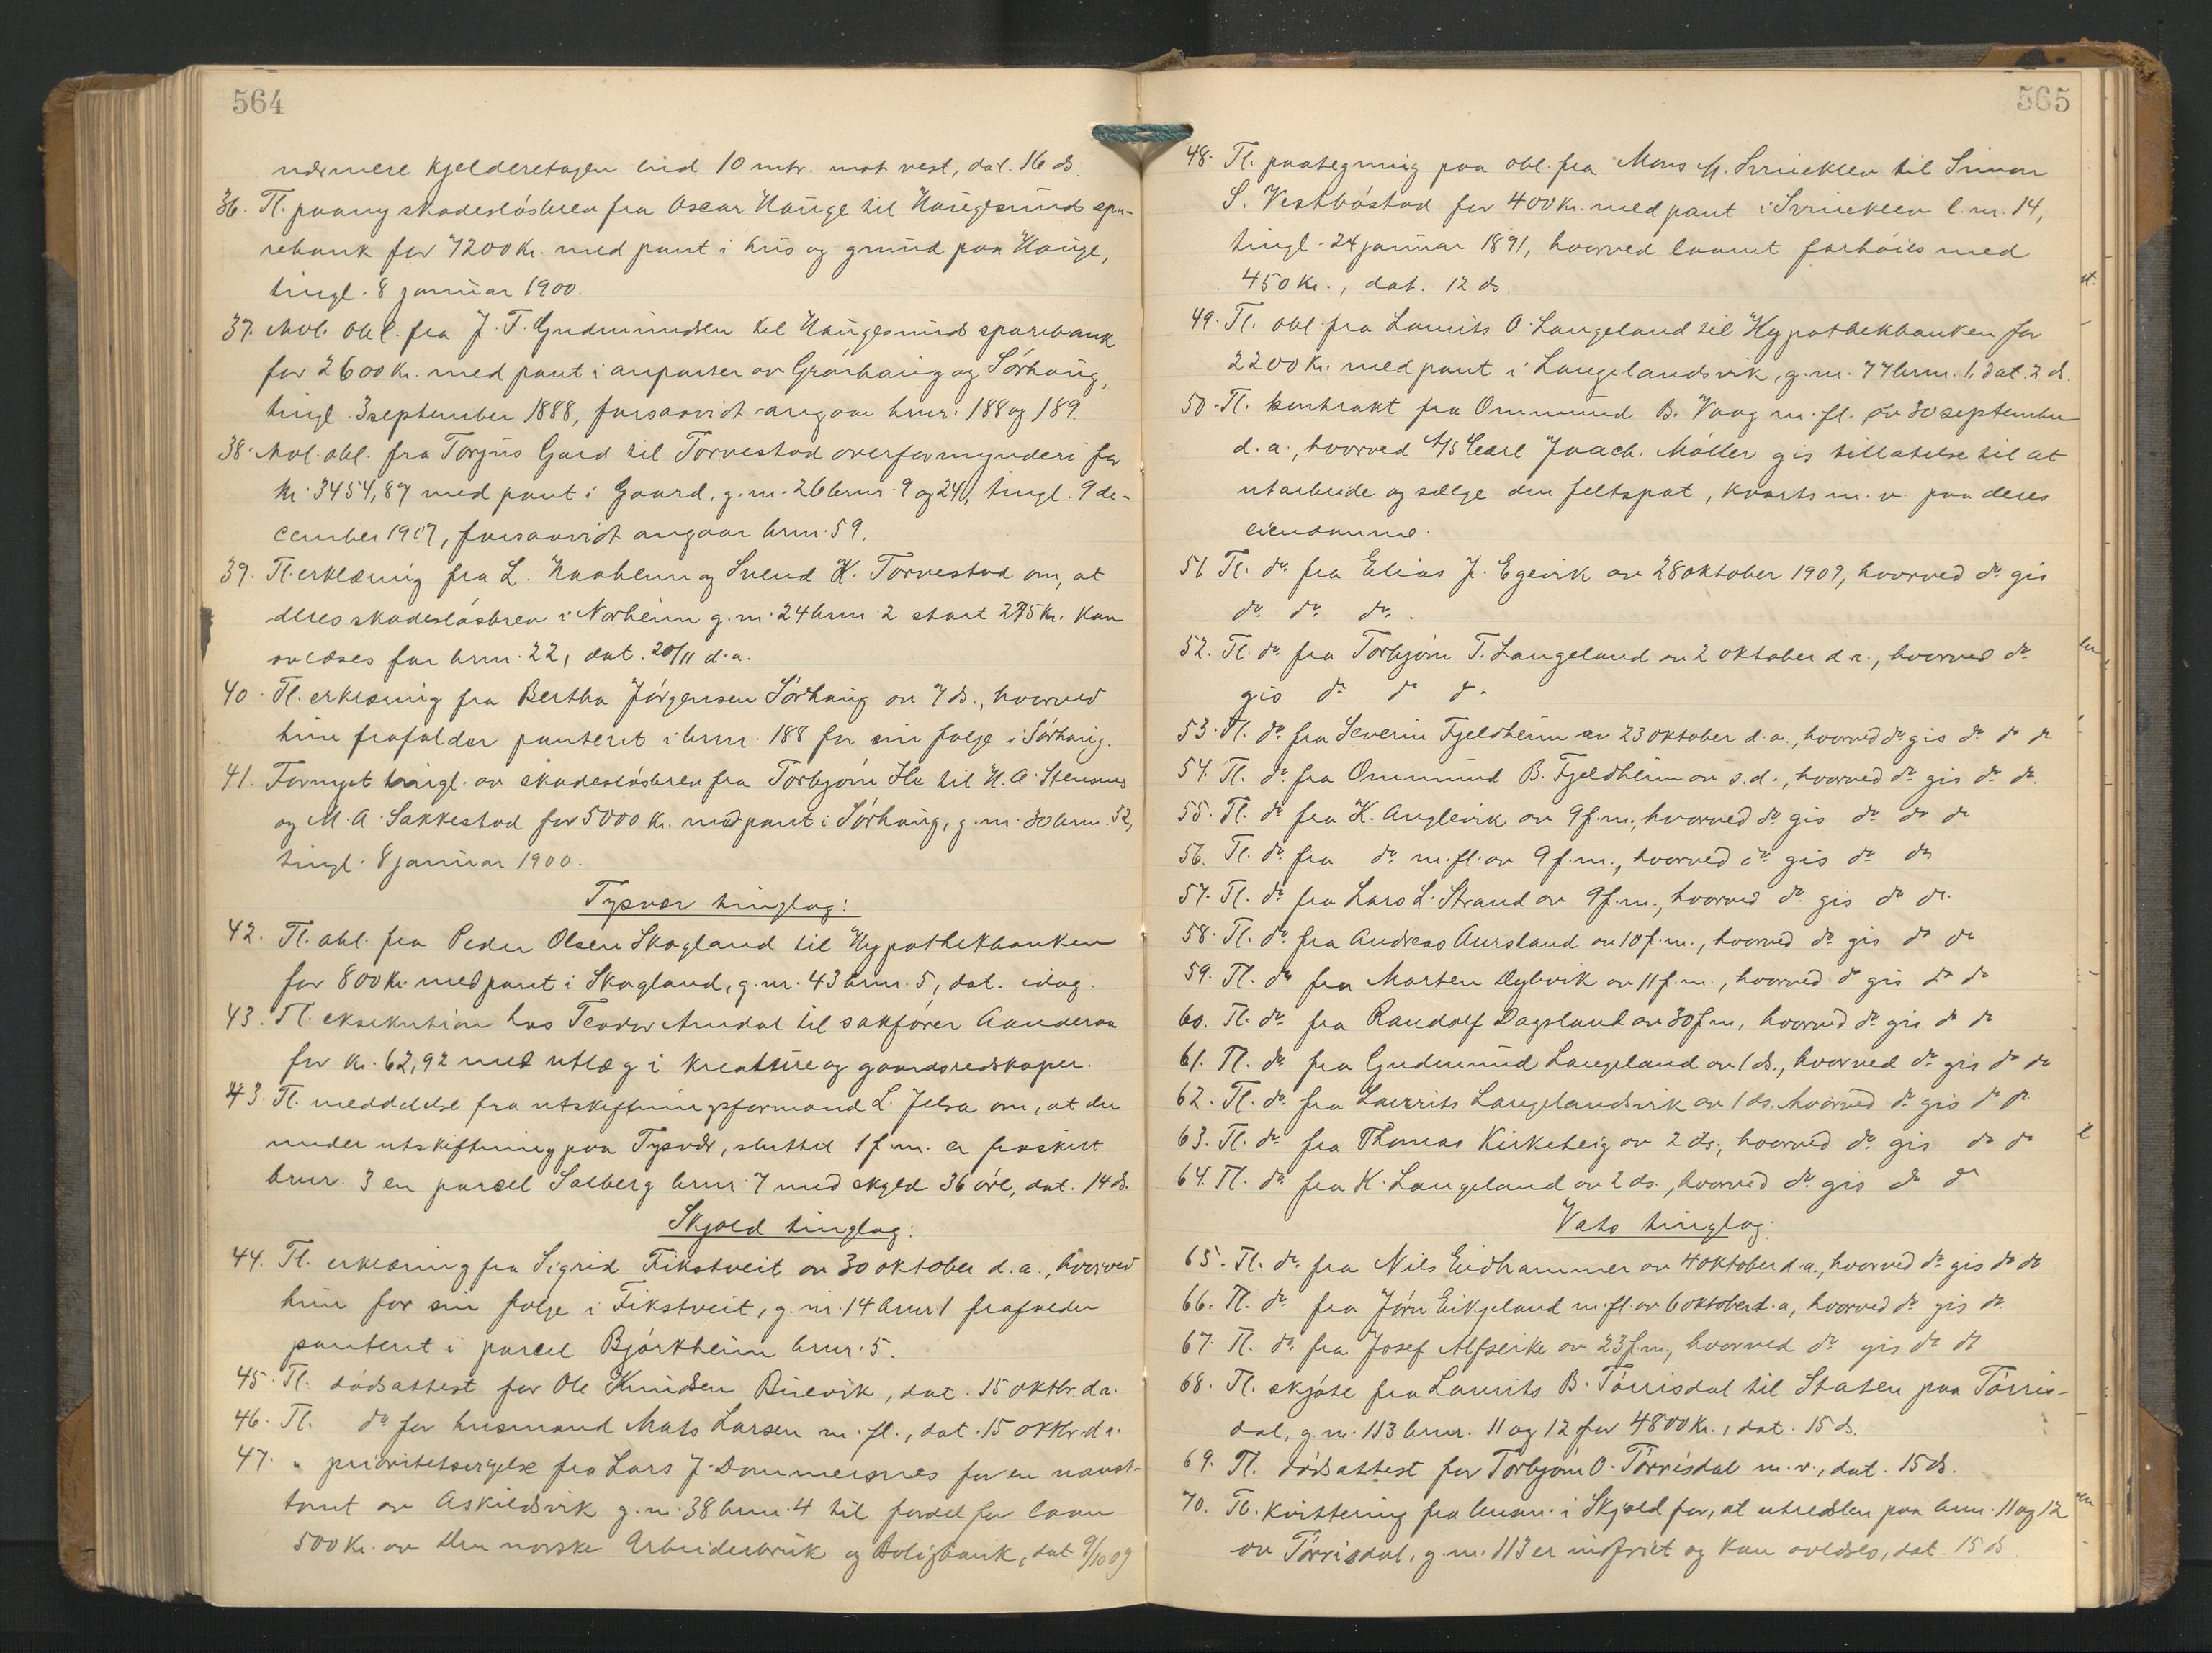 564
nærmere kjelderetagen ind 10 mtr. mot vest, dat. 16 ds.
36. Tl. paany skadesløsbrev fra Oscar Hauge til Haugesunds spa-
rebank for 7200 Kr. med pant i hus og grund paa Hauge,
tingl. 8 januar 1900.
37. Avl. obl. fra J. T. Gudmundsen til Haugesunds sparebank
for 2600 Kr. med pant i anparter av Grønhaug og Sørhaug,
tingl. 3 september 1888, forsaavidt angaar brnr. 188 og 189.
38. Avl. obl. fra Torjus Gard til Torvestad overformynderi for
kr. 3454,87 med pant i Gaard, g.nr. 26 brnr. 9 og 24, tingl. 9 de-
cember 1907, forsaavidt angaar brnr. 59.
39. Tl. erklæring fra L. Naaheim og Svend K. Torvestad om, at
deres skadesløsbrev i Norheim g.nr. 24 brnr. 2 stort 295 Kr. kan
avlæses for brnr. 22, dat. 20/11 d.a.
40. Tl. erklæring fra Bertha Jørgensen Sørhaug av 7 ds., hvorved
hun frafalder panteret i brnr. 188 for sin følge i Sørhaug.
41. Fornyet tingl. av skadesløsbrev fra Torbjørn He til H. A. Stensnes
og M. A. Sakkestad for 5000 Kr. med pant i Sørhaug, g.nr. 30 brnr. 52,
tingl. 8 januar 1900.
Tysvær tinglag:
42. Tl. obl. fra Peder Olsen Skogland til Hypothekbanken
for 800 Kr. med pant i Skogland, g.nr. 43 brnr. 5, dat. idag.
43. Tl. eksekution hos Teodor Amdal til sakfører Aanderaa
for kr. 62,92 med utlæg i kreature og gaardsredskaper.
43. Tl. meddelelse fra utskiftningsformand L. Jelsa om, at der
under utskiftning paa Tysvær, sluttet 1 f.m. er fraskilt
brnr. 3 en parcel Solberg brnr. 7 med skyld 36 øre, dat. 14 ds.
Skjold tinglag:
44. Tl. erklæring fra Sigrid Fikstveit av 30 oktober d.a., hvorved
hun for sin følge i Fikstveit, g.nr. 14 brnr. 1 frafalder
panteret i parcel Bjørkheim brnr. 5.
45. Tl. dødsattest for Ole Knudsen Buevik, dat. 15 oktbr. d.a.
46. Tl. do for husmand Mats Larsen m.fl., dat. 15 oktbr. d.a.
47. " prioritetsvigelse fra Lars J. Dommersnes for en naust-
tomt av Askildsvik g.nr. 38 brnr. 4 til fordel for laan
500 Kr. av Den norske Arbeiderbruk og Boligbank, dat. 9/10 09
565
48. Tl. paategning paa obl. fra Mons M. Svineklev til Simon
S. Vestbøstad for 400 Kr. med pant i Svineklev l.nr. 14,
tingl. 24 januar 1891, hvorved laanet forhøies med
450 Kr., dat. 12 ds.
49. Tl. obl. fra Laurits O. Langeland til Hypothekbanken for
2200 Kr. med pant i Langelandsvik, g.nr. 77 brnr. 1, dat. 2 ds.
50. Tl. kontrakt fra Ommund B. Vaag m.fl. av 30 september
d.a., hvorved A/S Carl Joach. Møller gis tillatelse til at
utarbeide og sælge den feltspat, kvarts m.v. paa deres
eiendomme.
51. Tl. do. fra Elias J. Egevik av 28 oktober 1909, hvorved do gis
do. do. do.
52. Tl. do. fra Torbjørn T. Langeland av 2 oktober d.a., hvorved do
gis do do do
53. Tl. do. fra Severin Fjeldheim av 23 oktober d.a., hvorved do gis do do do
54. Tl. do. fra Ommund B. Fjeldheim av s.d., hvorved do gis do do.
55. Tl. do fra K. Anglevik av 9 f.m., hvorved do gis do do do
56. Tl. do. fra do. m.fl. av 9 f.m., hvorved do gis do do
57. Tl. do fra Lars L. Strand av 9 f.m., hvorved do. gis do do.
58. Tl. do. fra Andreas Aursland av 10 f.m., hvorved do gis do do
59. Tl. do fra Morten Dybvik av 11 f.m., hvorved do gis do do
60. Tl. do. fra Randolf Dagsland av 30 f.m., hvorved do gis do do
61. Tl. do. fra Gudmund Langeland av 1 ds., hvorved do gis do do
62. Tl. do. fra Laurits Langelandsvik av 1 ds. hvorved do gis do do
63. Tl. do. fra Thomas Kirketeig av 2 ds., hvorved do. gis do do
64. Tl. do. fra K. Langeland av 2 ds., hvorved do. gis do do
Vats tinglag:
65. Tl. do. fra Nils Eidhammer av 4 oktober d.a., hvorved do gis do do
66. Tl. do. fra Jørn Eikjeland m.fl. av 6 oktober d.a, hvorved do gis do.
67. Tl. do. fra Josef Alfseike av 23 f.m., hvorved do gis do do
68. Tl. skjøte fra Laurits B. Tørrisdal til Staten paa Tørris-
dal, g.nr. 113 brnr. 11 og 12 for 4800 Kr., dat. 15 ds.
69. Tl. dødsattest for Torbjørn O. Tørrisdal m.v., dat. 15 ds.
70. Tl. kvittering fra lensm. i Skjold for, at utredslen paa brnr. 11 og 12
av Tørrisdal, g.nr. 113 er indfriet og kan avlæses, dat. 15 ds